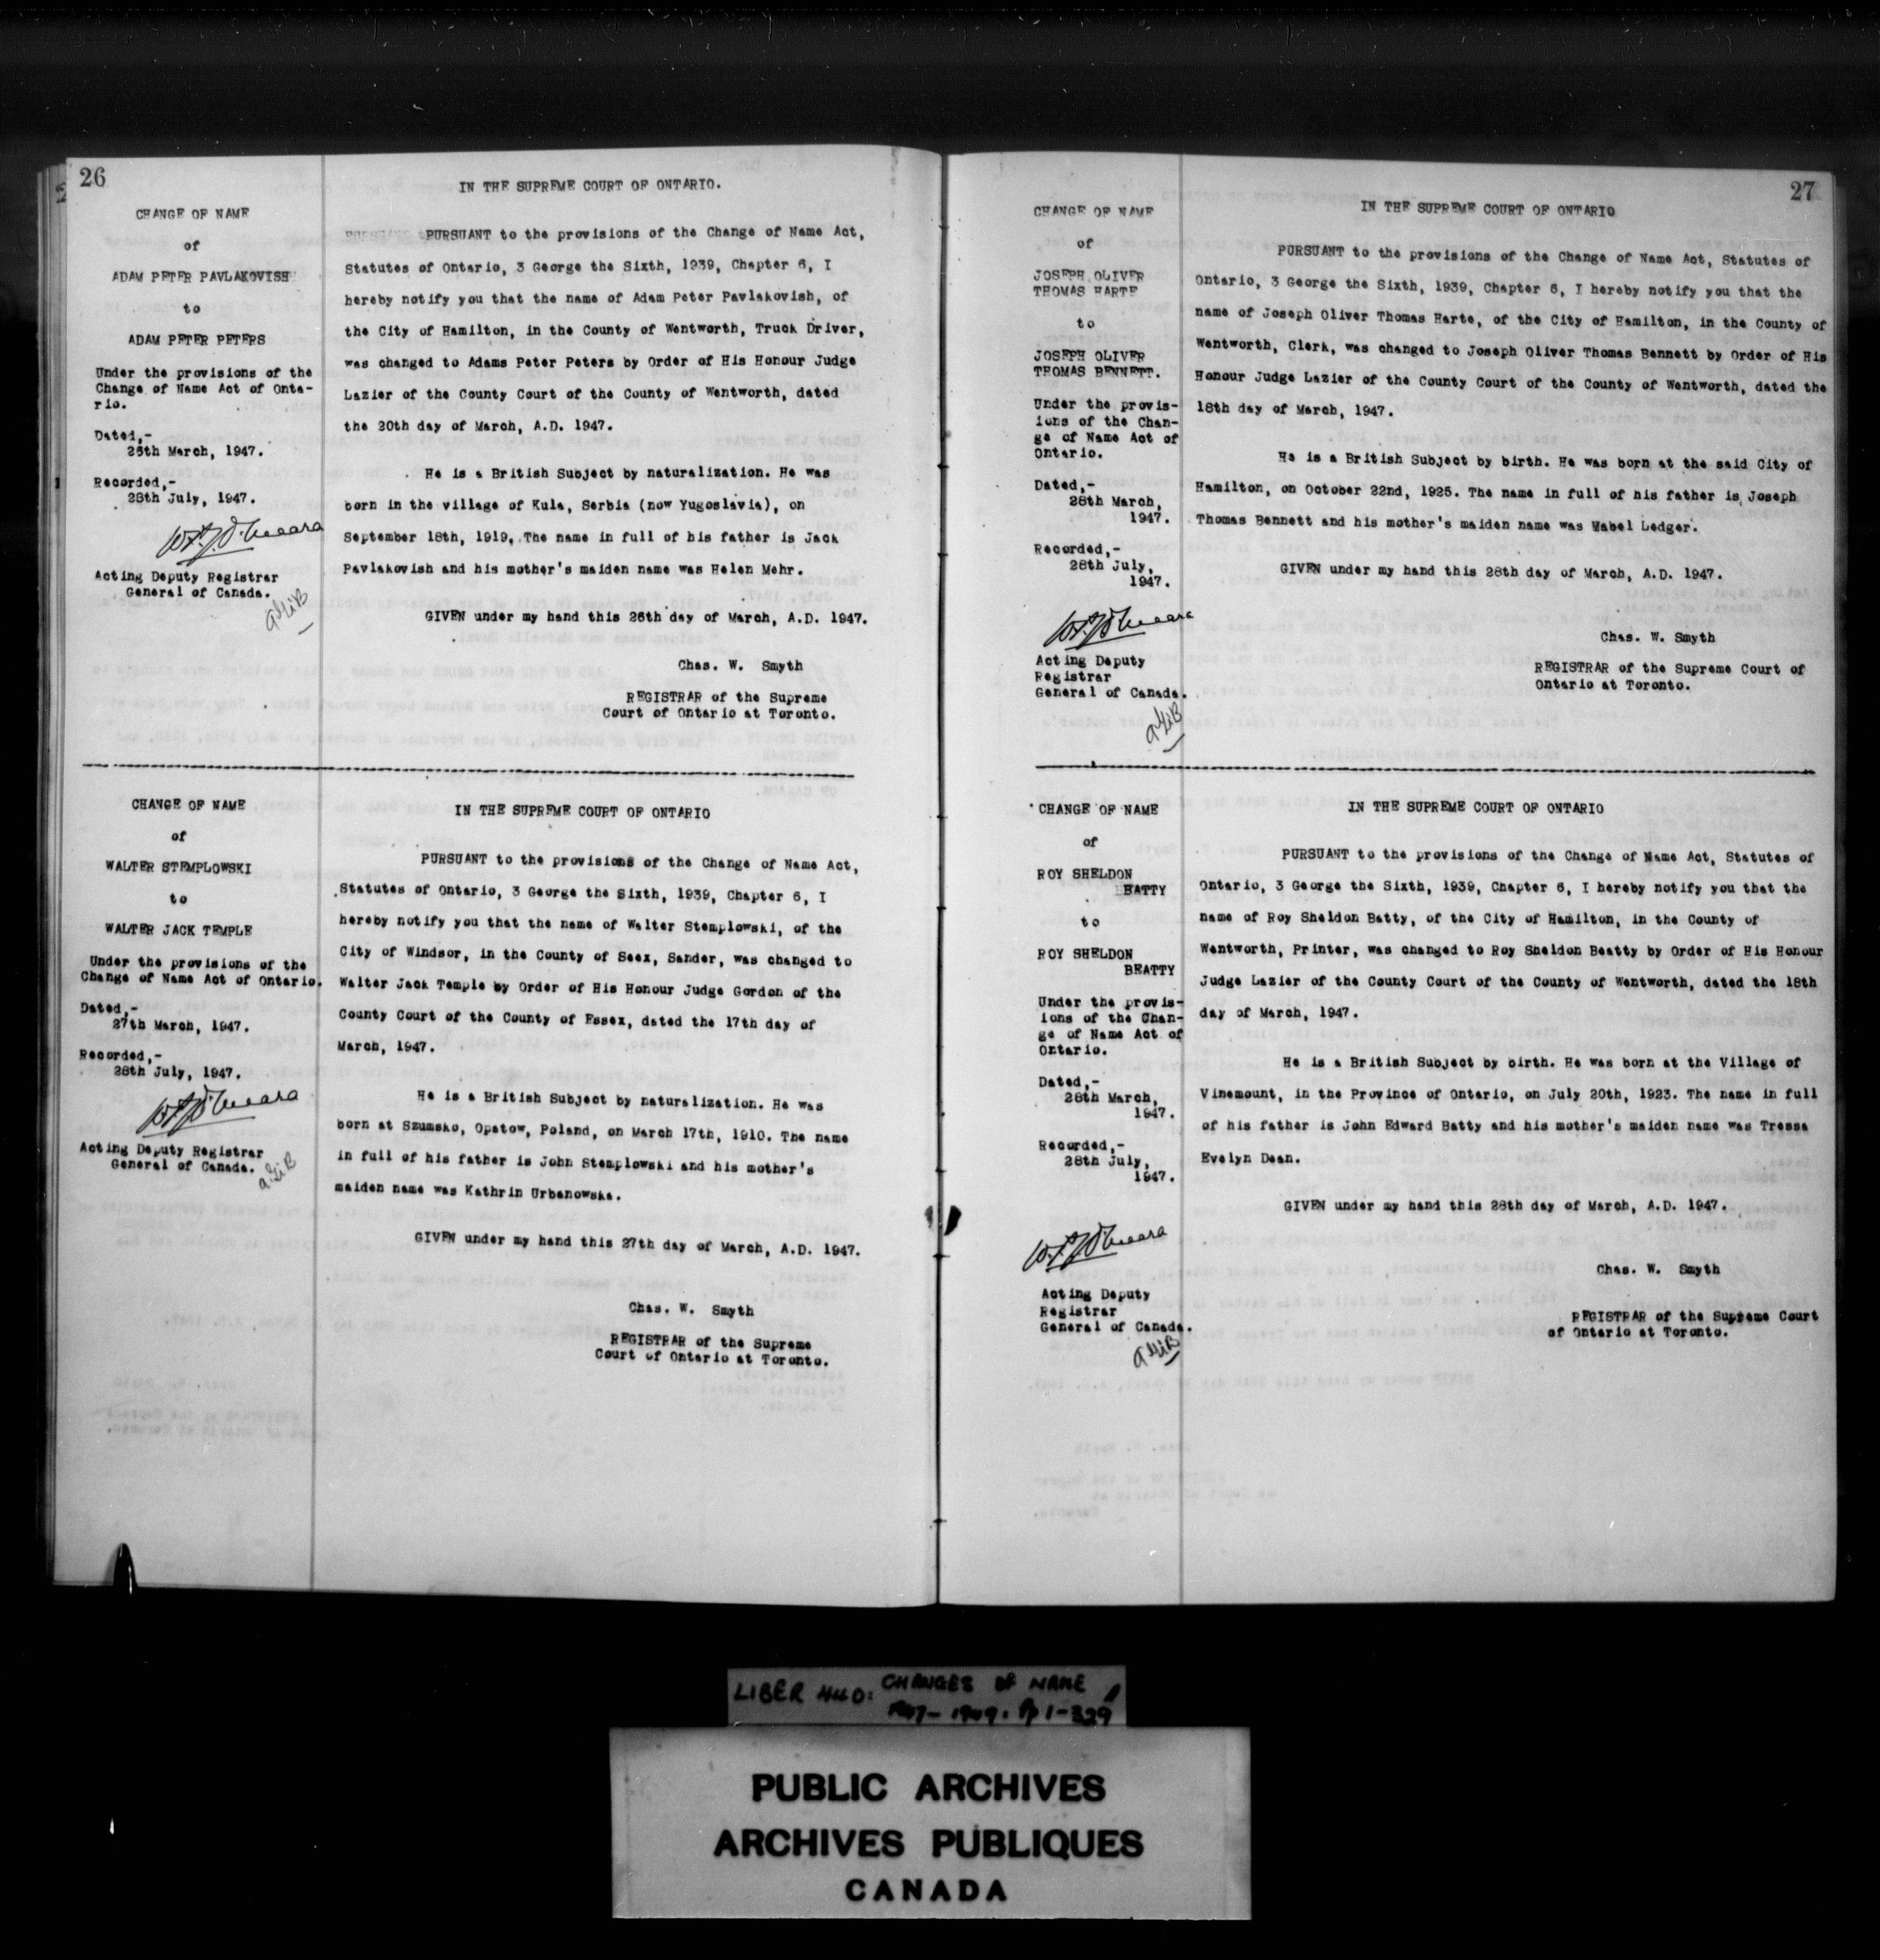 26
CHANGE OF NAME
of
ADAM PETER PAVLAKOVISH
to
ADAM PETER PETERS
Under the provisions of the
Change of Name Act of Onta-
rio.
Dated,-
26th March, 1947.
Recorded,-
28th July, 1947.
Acting Deputy Registrar
General of Canada.
IN THE SUPREME COURT OF ONTARIO.
PURSUANT to the provisions of the Change of Name Act,
Statutes of Ontario, 3 George the Sixth, 1939, Chapter 6, I
hereby notify you that the name of Adam Peter Pavlakovish, of
the City of Hamilton, in the County of Wentworth, Truck Driver,
was changed to Adams Peter Peters by Order of His Honour Judge
Lazier of the County Court of the County of Wentworth, dated
the 20th day of March, A.D. 1947.
He is a British Subject by naturalization. He was
born in the village of Kula, Serbia (now Yugoslavia), on
September 18th, 1919. The name in full of his father is Jack
Pavlakovish and his mother's maiden name was Helen Mehr.
GIVEN under my hand this 26th day of March, A.D. 1947.
Chas. W. Smyth
REGISTRAR of the Supreme
Court of Ontario at Toronto.
CHANGE OF NAME
of
WALTER STEMPLOWSKI
to
WALTER JACK TEMPLE
Under the provisions of the
Change of Name Act of Ontario.
Dated,-
27th March, 1947.
Recorded,-
28th July, 1947.
Acting Deputy Registrar
General of Canada.
IN THE SUPREME COURT OF ONTARIO
PURSUANT to the provisions of the Change of Name Act,
Statutes of Ontario, 3 George the Sixth, 1939, Chapter 6, I
hereby notify you that the name of Walter Stemplowski, of the
City of Windsor, in the County of Seex, Sander, was changed to
Walter Jack Temple by Order of His Honour Judge Gordon of the
County Court of the County of Essex, dated the 17th day of
March, 1947.
He is a British Subject by naturalization. He was
born at Szumsko, Opatow, Poland, on March 17th, 1910. The name
in full of his father is John Stemplowski and his mother's
maiden name was Kathrin Urbanowska.
GIVEN under my hand this 27th day of March, A.D. 1947.
Chas. W. Smyth
REGISTRAR of the Supreme
Court of Ontario at Toronto.
27
CHANGE OF NAME
of
JOSEPH OLIVER
THOMAS HARTE
to
JOSEPH OLIVER
THOMAS BENNETT.
Under the provis-
ions of the Chan-
ge of Name Act of
Ontario.
Dated,-
28th March,
1947.
Recorded,-
28th July,
1947.
Acting Deputy
Registrar
General of Canada.
IN THE SUPREME COURT OF ONTARIO
PURSUANT to the provisions of the Change of Name Act, Statutes of
Ontario, 3 George the Sixth, 1939, Chapter 6, I hereby notify you that the
name of Joseph Oliver Thomas Harte, of the City of Hamilton, in the County of
Wentworth, Clerk, was changed to Joseph Oliver Thomas Bennett by Order of His
Honour Judge Lazier of the County Court of the County of Wentworth, dated the
18th day of March, 1947.
He is a British Subject by birth. He was born at the said City of
Hamilton, on October 22nd, 1925. The name in full of his father is Joseph
Thomas Bennett and his mother's maiden name was Mabel Ledger.
GIVEN under my hand this 28th day of March, A.D. 1947.
Chas. W. Smyth
REGISTRAR of the Supreme Court of
Ontario at Toronto.
CHANGE OF NAME
of
ROY SHELDON
BATTY
to
ROY SHELDON
BEATTY
Under the provis-
ions of the Chan-
ge of Name Act of
Ontario.
Dated,-
28th March,
1947.
Recorded,-
28th July,
1947.
Acting Deputy
Registrar
General of Canada.
IN THE SUPREME COURT OF ONTARIO
PURSUANT to the provisions of the Change of Name Act, Statutes of
Ontario, 3 George the Sixth, 1939, Chapter 6, I hereby notify you that the
name of Roy Sheldon Batty, of the City of Hamilton, in the County of
Wentworth, Printer, was changed to Roy Sheldon Beatty by Order of His Honour
Judge Lazier of the County Court of the County of Wentworth, dated the 18th
day of March, 1947.
He is a British Subject by birth. He was born at the Village of
Vinemount, in the Province of Ontario, on July 20th, 1923. The name in full
of his father is John Edward Batty and his mother's maiden name was Tressa
Evelyn Dean.
GIVEN under my hand this 28th day of March, A.D. 1947.
Chas. W. Smyth
REGISTRAR of the Supreme Court
of Ontario at Toronto.
LIBER 440: CHANGES OF NAME
1947-1949. Pp 1-329
PUBLIC ARCHIVES
ARCHIVES PUBLIQUES
CANADA